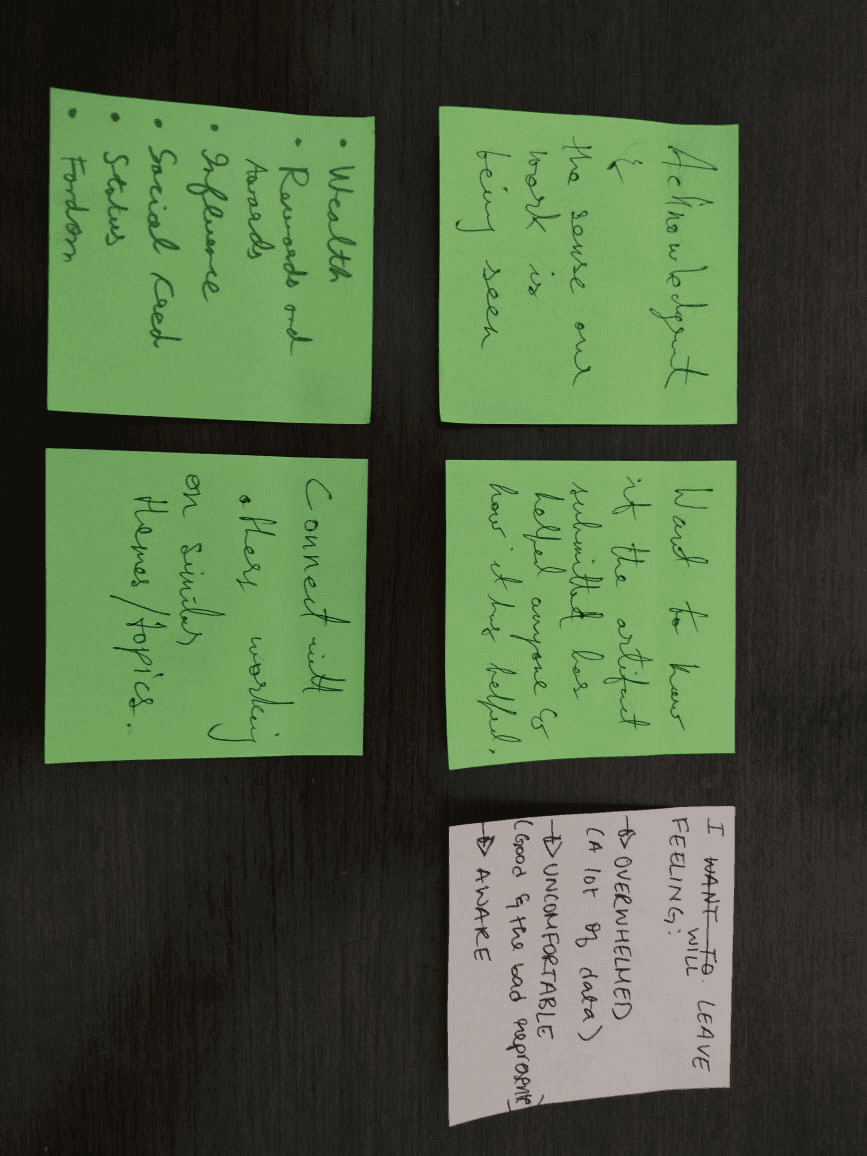 Acknowledgent
&
the sense our
work is
being seen
Want to know
if the artifact
submitted has
helped anyone &
how it has helped.
I WANT TO. LEAVE
WILL
FEELING:
→ OVERWHELMED
(A lot of data)
→ UNCOMFORTABLE
(Good & the bad
→ AWARE
• Wealth
• Rewards and
awards
• Influence
• Social
• Status
• Fandom
Connect with
others working
on similar
themes/topics.